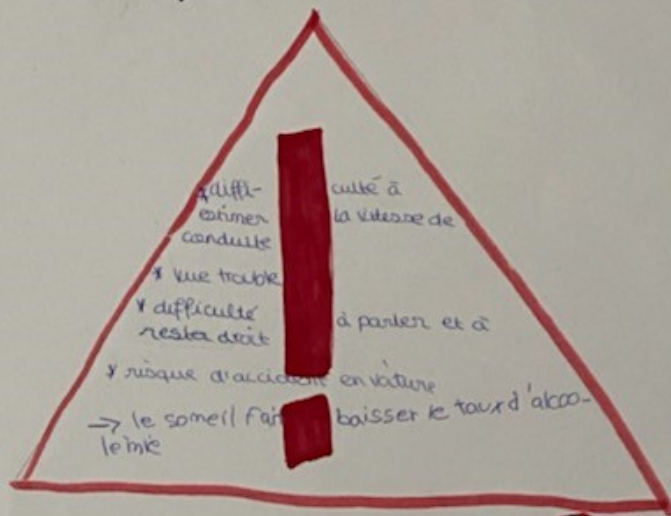 * diffi- culté à
estimer la vitesse de
conduite
* vue trouble
* difficulté à parler et à
rester droit
* risque d'accident en voiture
→ le someil fait baisser le taux d'alcoo-
lémie